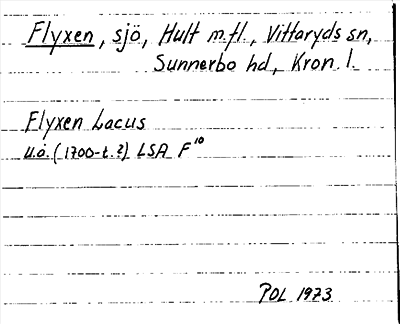 Flyxen, sjö, Hult m.fl., Vittaryds sn,
Sunnerbo hd, Kron. l.
Flyxen Lacus
u.å. (1700-t.?) LSA F¹⁰
POL 1973